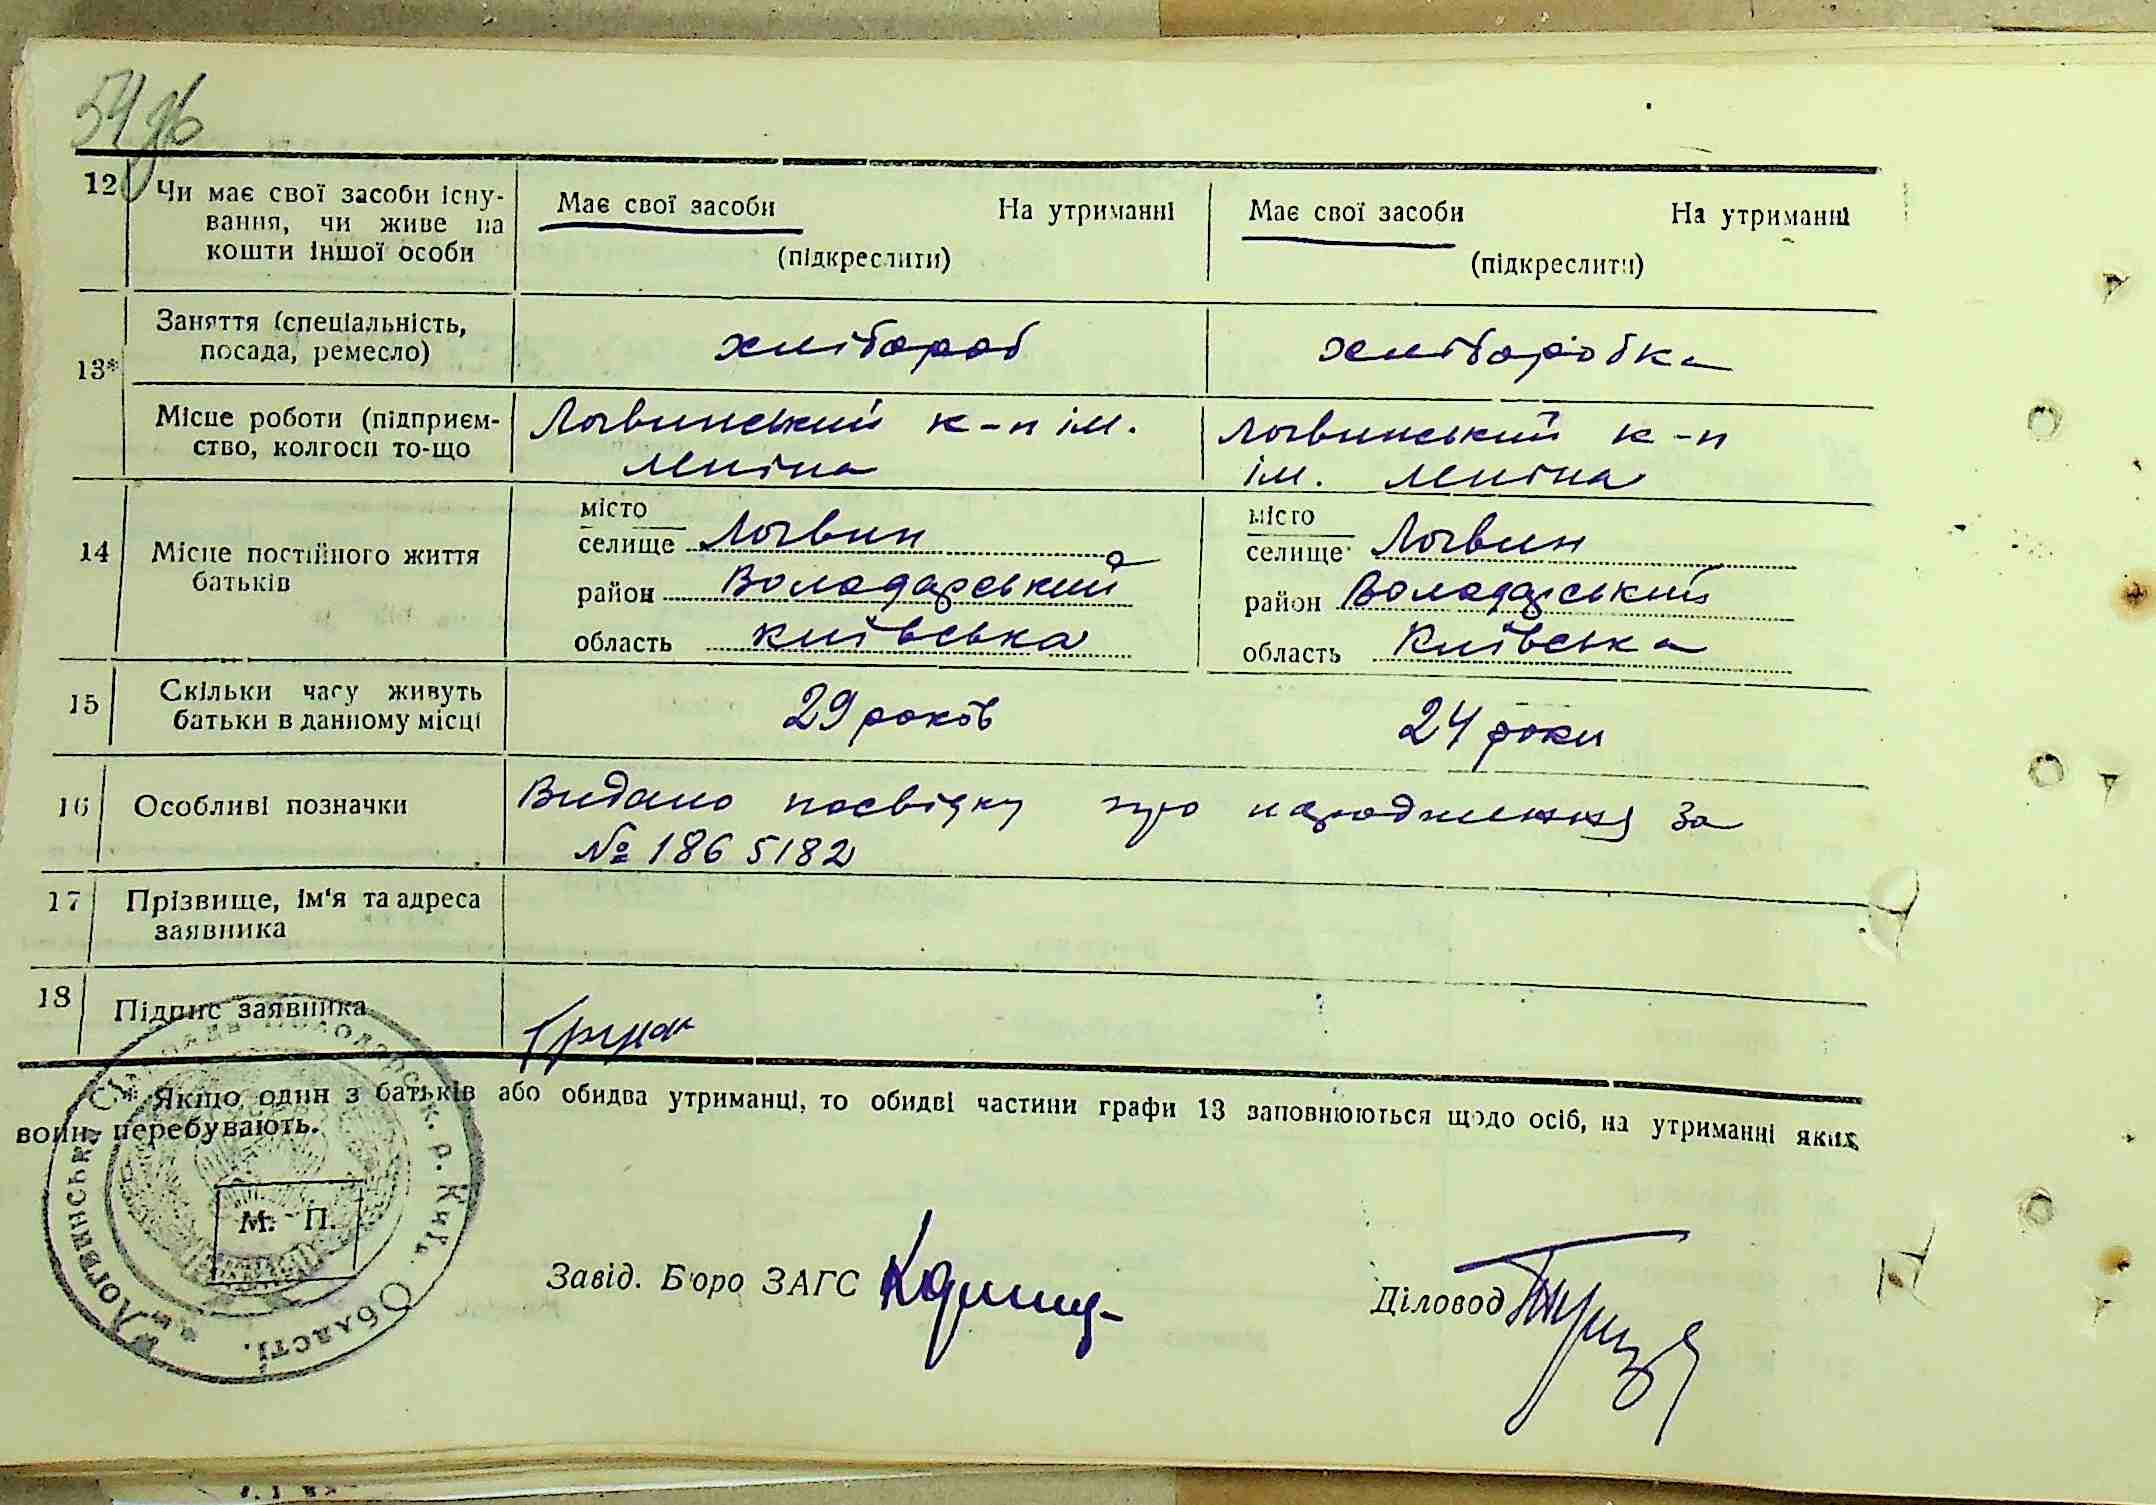 54 зв
12 Чи має свої засоби існу-
вання, чи живе на
кошти іншої особи
Має свої засоби На утриманні
(підкреслити)
Має свої засоби На утриманні
(підкреслити)
13* Заняття (спеціальність,
посада, ремесло)
хлібороб
хліборобка
Місце роботи (підприєм-
ство, колгосп то-що
Логвинський к-п ім.
Леніна
Логвинський к-п
ім. Леніна
14 Місце постійного життя
батьків
місто
селище Логвин
район Володарський
область київська
місто
селище Логвин
район Володарський
область Київська
15 Скільки часу живуть
батьки в данному місці
29 років
24 роки
16 Особливі позначки
Видано посвідку про народження за
№ 1865182
17 Прізвище, ім'я та адреса
заявника
18 Підпис заявника
* Якщо один з батьків або обидва утриманці, то обидві частини графи 13 заповнюються щодо осіб, на утриманні яких
вони перебувають.
М. П.
Завід. Бюро ЗАГС
Діловод